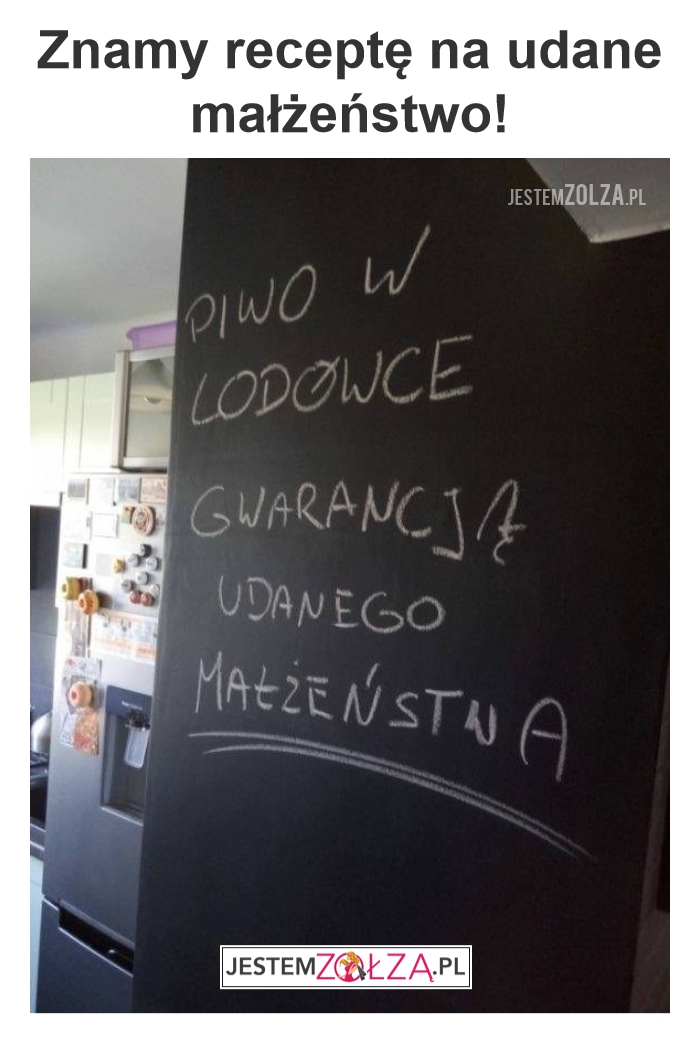 Znamy receptę na udane
małżeństwo!
JESTEMZOLZA.PL
PIWO W
LODÓWCE
GWARANCJĄ
UDANEGO
MAŁŻEŃSTWA
JESTEMZOŁZA.PL